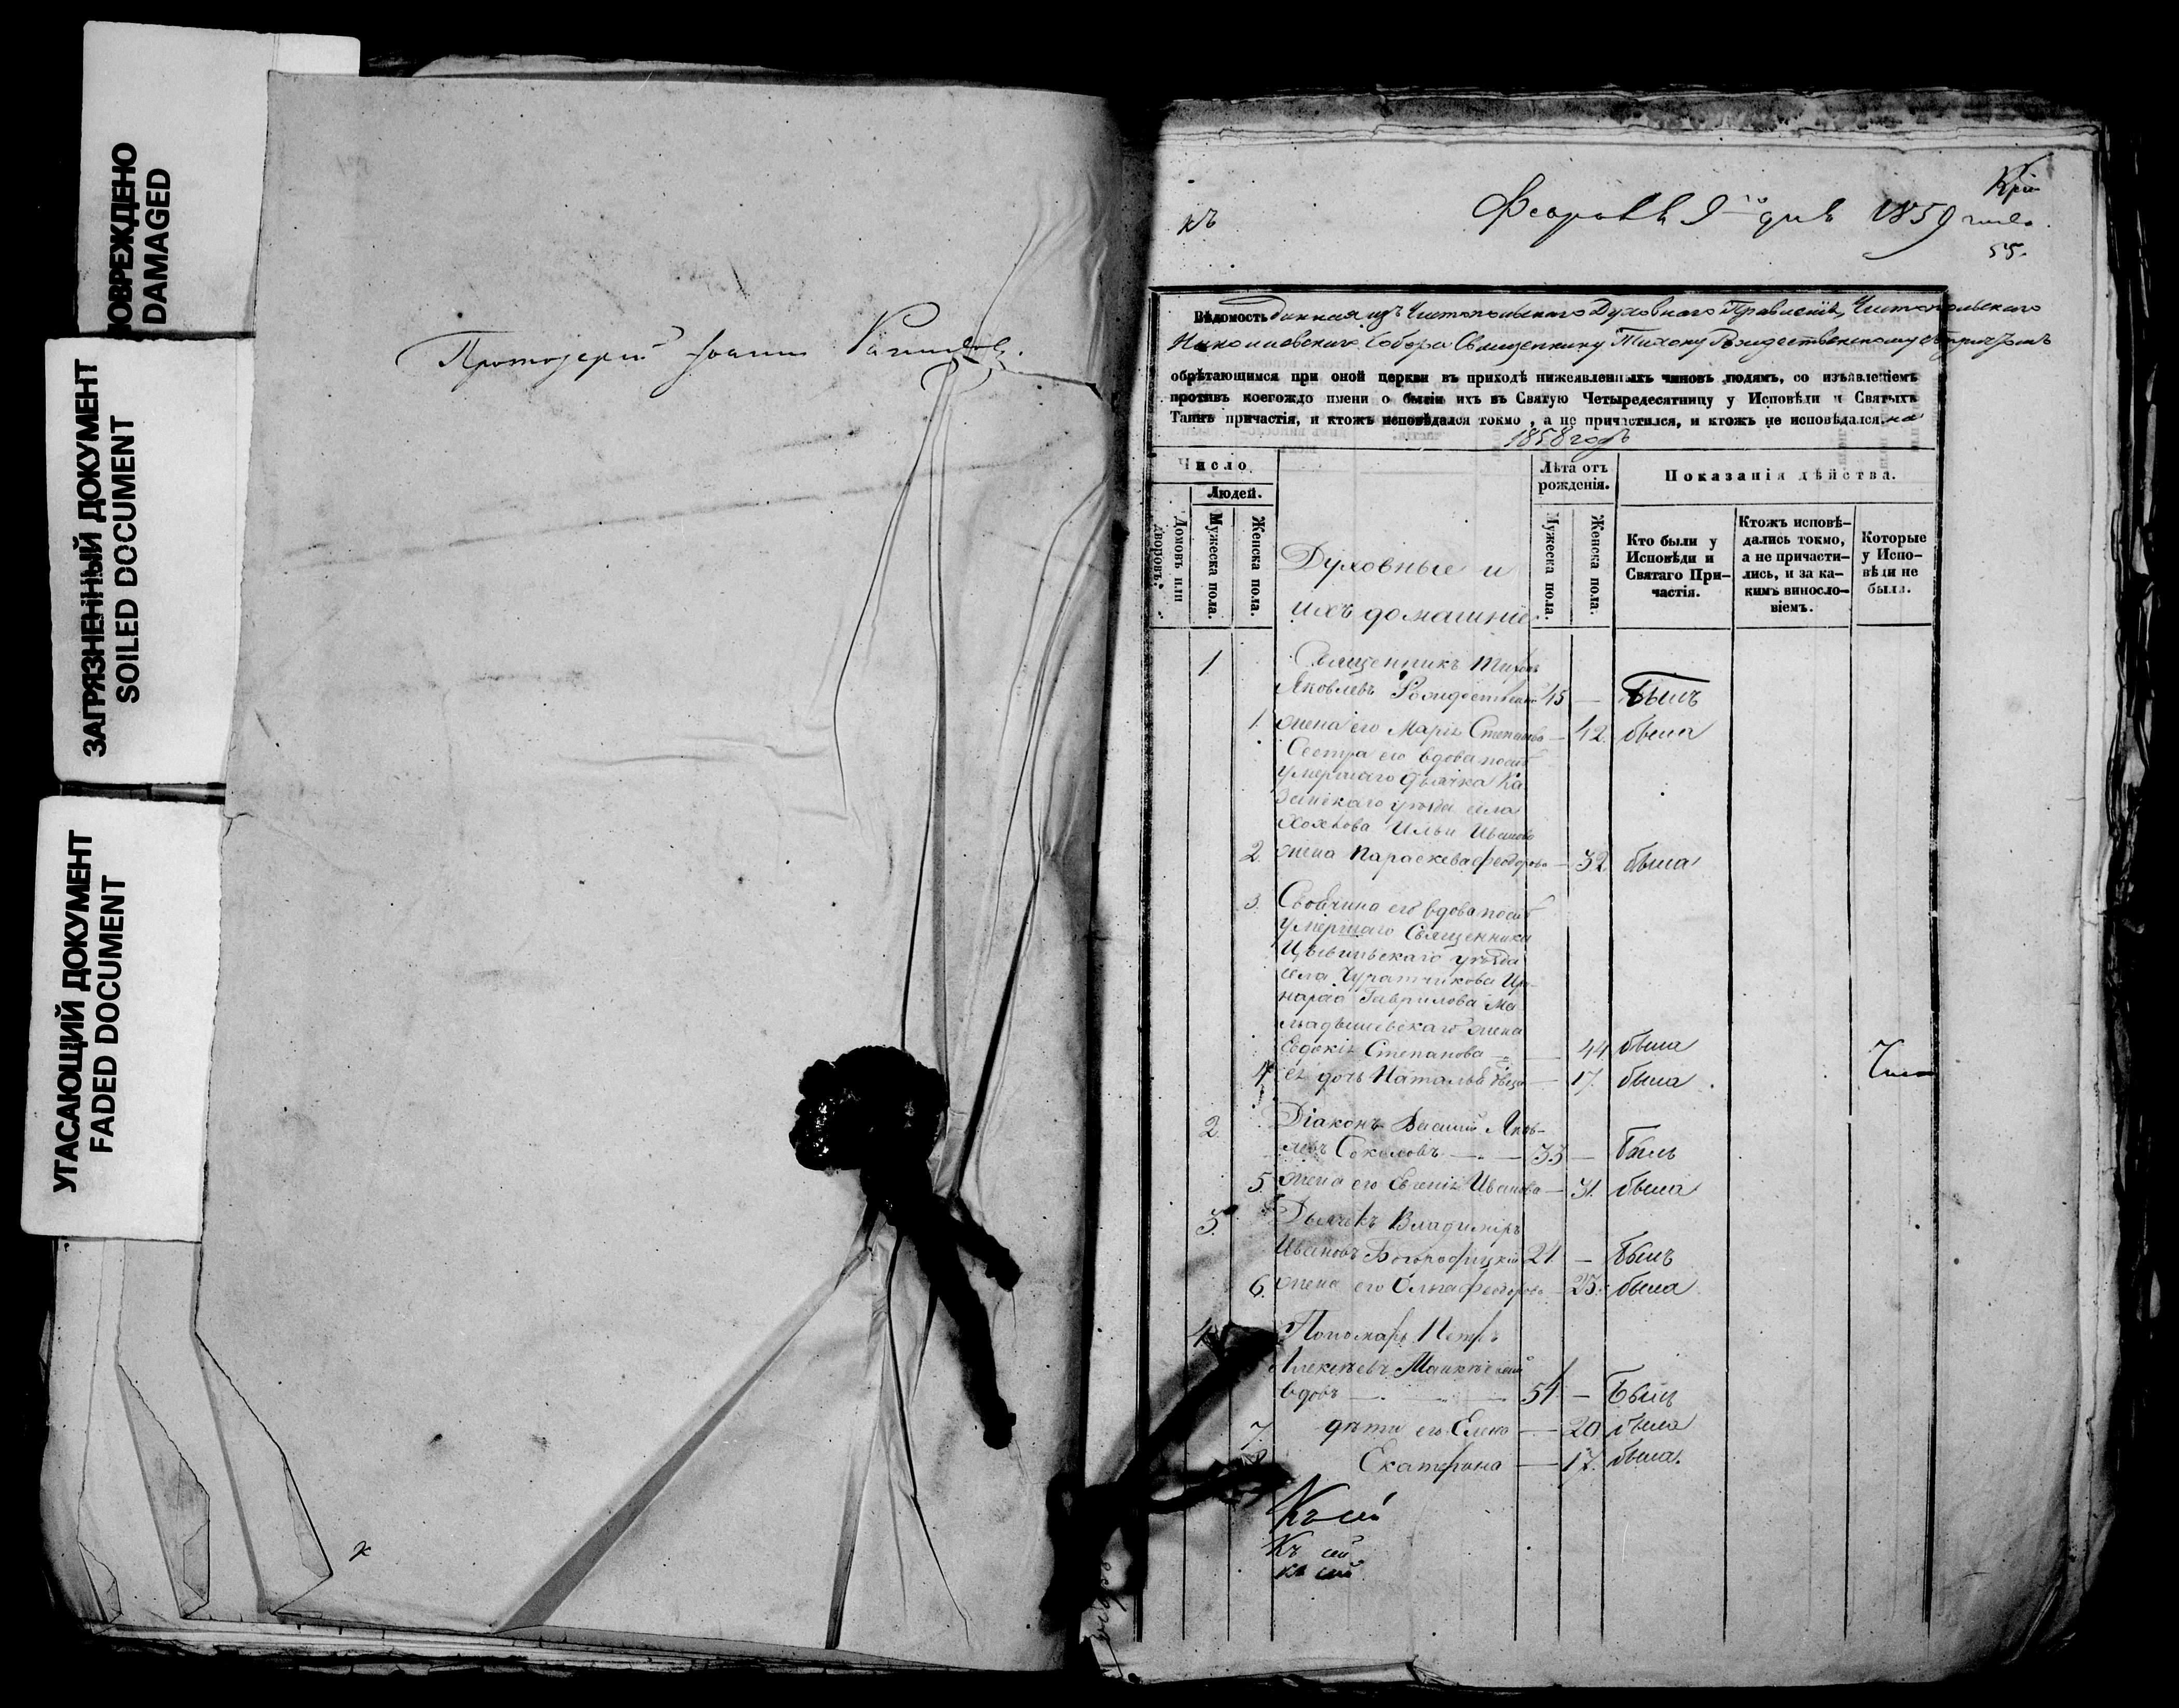 ПОВРЕЖДЕНО
DAMAGED
ЗАГРЯЗНЕННЫЙ ДОКУМЕНТ
SOILED DOCUMENT
УГАСАЮЩИЙ ДОКУМЕНТ
FADED DOCUMENT
Протоіерей Іоаннъ
къ
9 дня 1859 года
55.
Вѣдомость данная изъ Чистопольскаго Духовнаго Правленія, Чистопольскаго
Николаевскаго Собора Священнику Тихону Рождественскому съ причтомъ
обрѣтающимся при оной церкви въ приходѣ нижеявленныхъ чиновъ людямъ, со изъявленіемъ
противъ коегождо имени о бытіи ихъ въ Святую Четыредесятницу у Исповѣди и Святыхъ
Таинъ причастія, и ктожъ исповѣдался токмо, а не причастился, и ктожъ не исповѣдался. на
1858 годъ
Число
Людей.
Домовъ или дворовъ.
Мужеска пола.
Женска пола.
Духовные и
ихъ домашніе
Лѣта отъ рожденія.
Мужеска пола.
Женска пола.
Показанія дѣйства.
Кто были у Исповѣди и Святаго Причастія.
Ктожъ исповѣдались токмо, а не причастились, и за какимъ винословіемъ.
Которые у Исповѣди не были.
1 Священникъ Тихонъ
Яковлевъ Рождественскій 45 — былъ
1. жена его Марія Степанова — 42. была
Сестра его вдова послѣ
умершаго дьячка Ка
занскаго уѣзда села
Хохлова Ильи Иванова
2. жена Параскева Феодорова — 32 была
3. Своячина его вдова послѣ
умершаго Священника
Цывильскаго уѣзда
села Чуратчикова
Гаврилова Ма
лладышевскаго жена
Евдокія Степанова — 44 была
4 ея дочь Наталья — 17. была
2. Діаконъ Василій Яков-
левъ Соколовъ — 33 — былъ
5. жена его Евгенія Иванова — 31. была
3. Дьячекъ Владиміръ
Ивановъ Богородицкій 24. — былъ
6. жена его Ольга Феодорова — 23. была
4 Пономарь Петръ
Алексѣевъ
вдовъ — 54 — былъ
7. дѣти его Елена — 20 была
8 Екатерина — 17. была.
Къ сей
Къ сей
къ сей